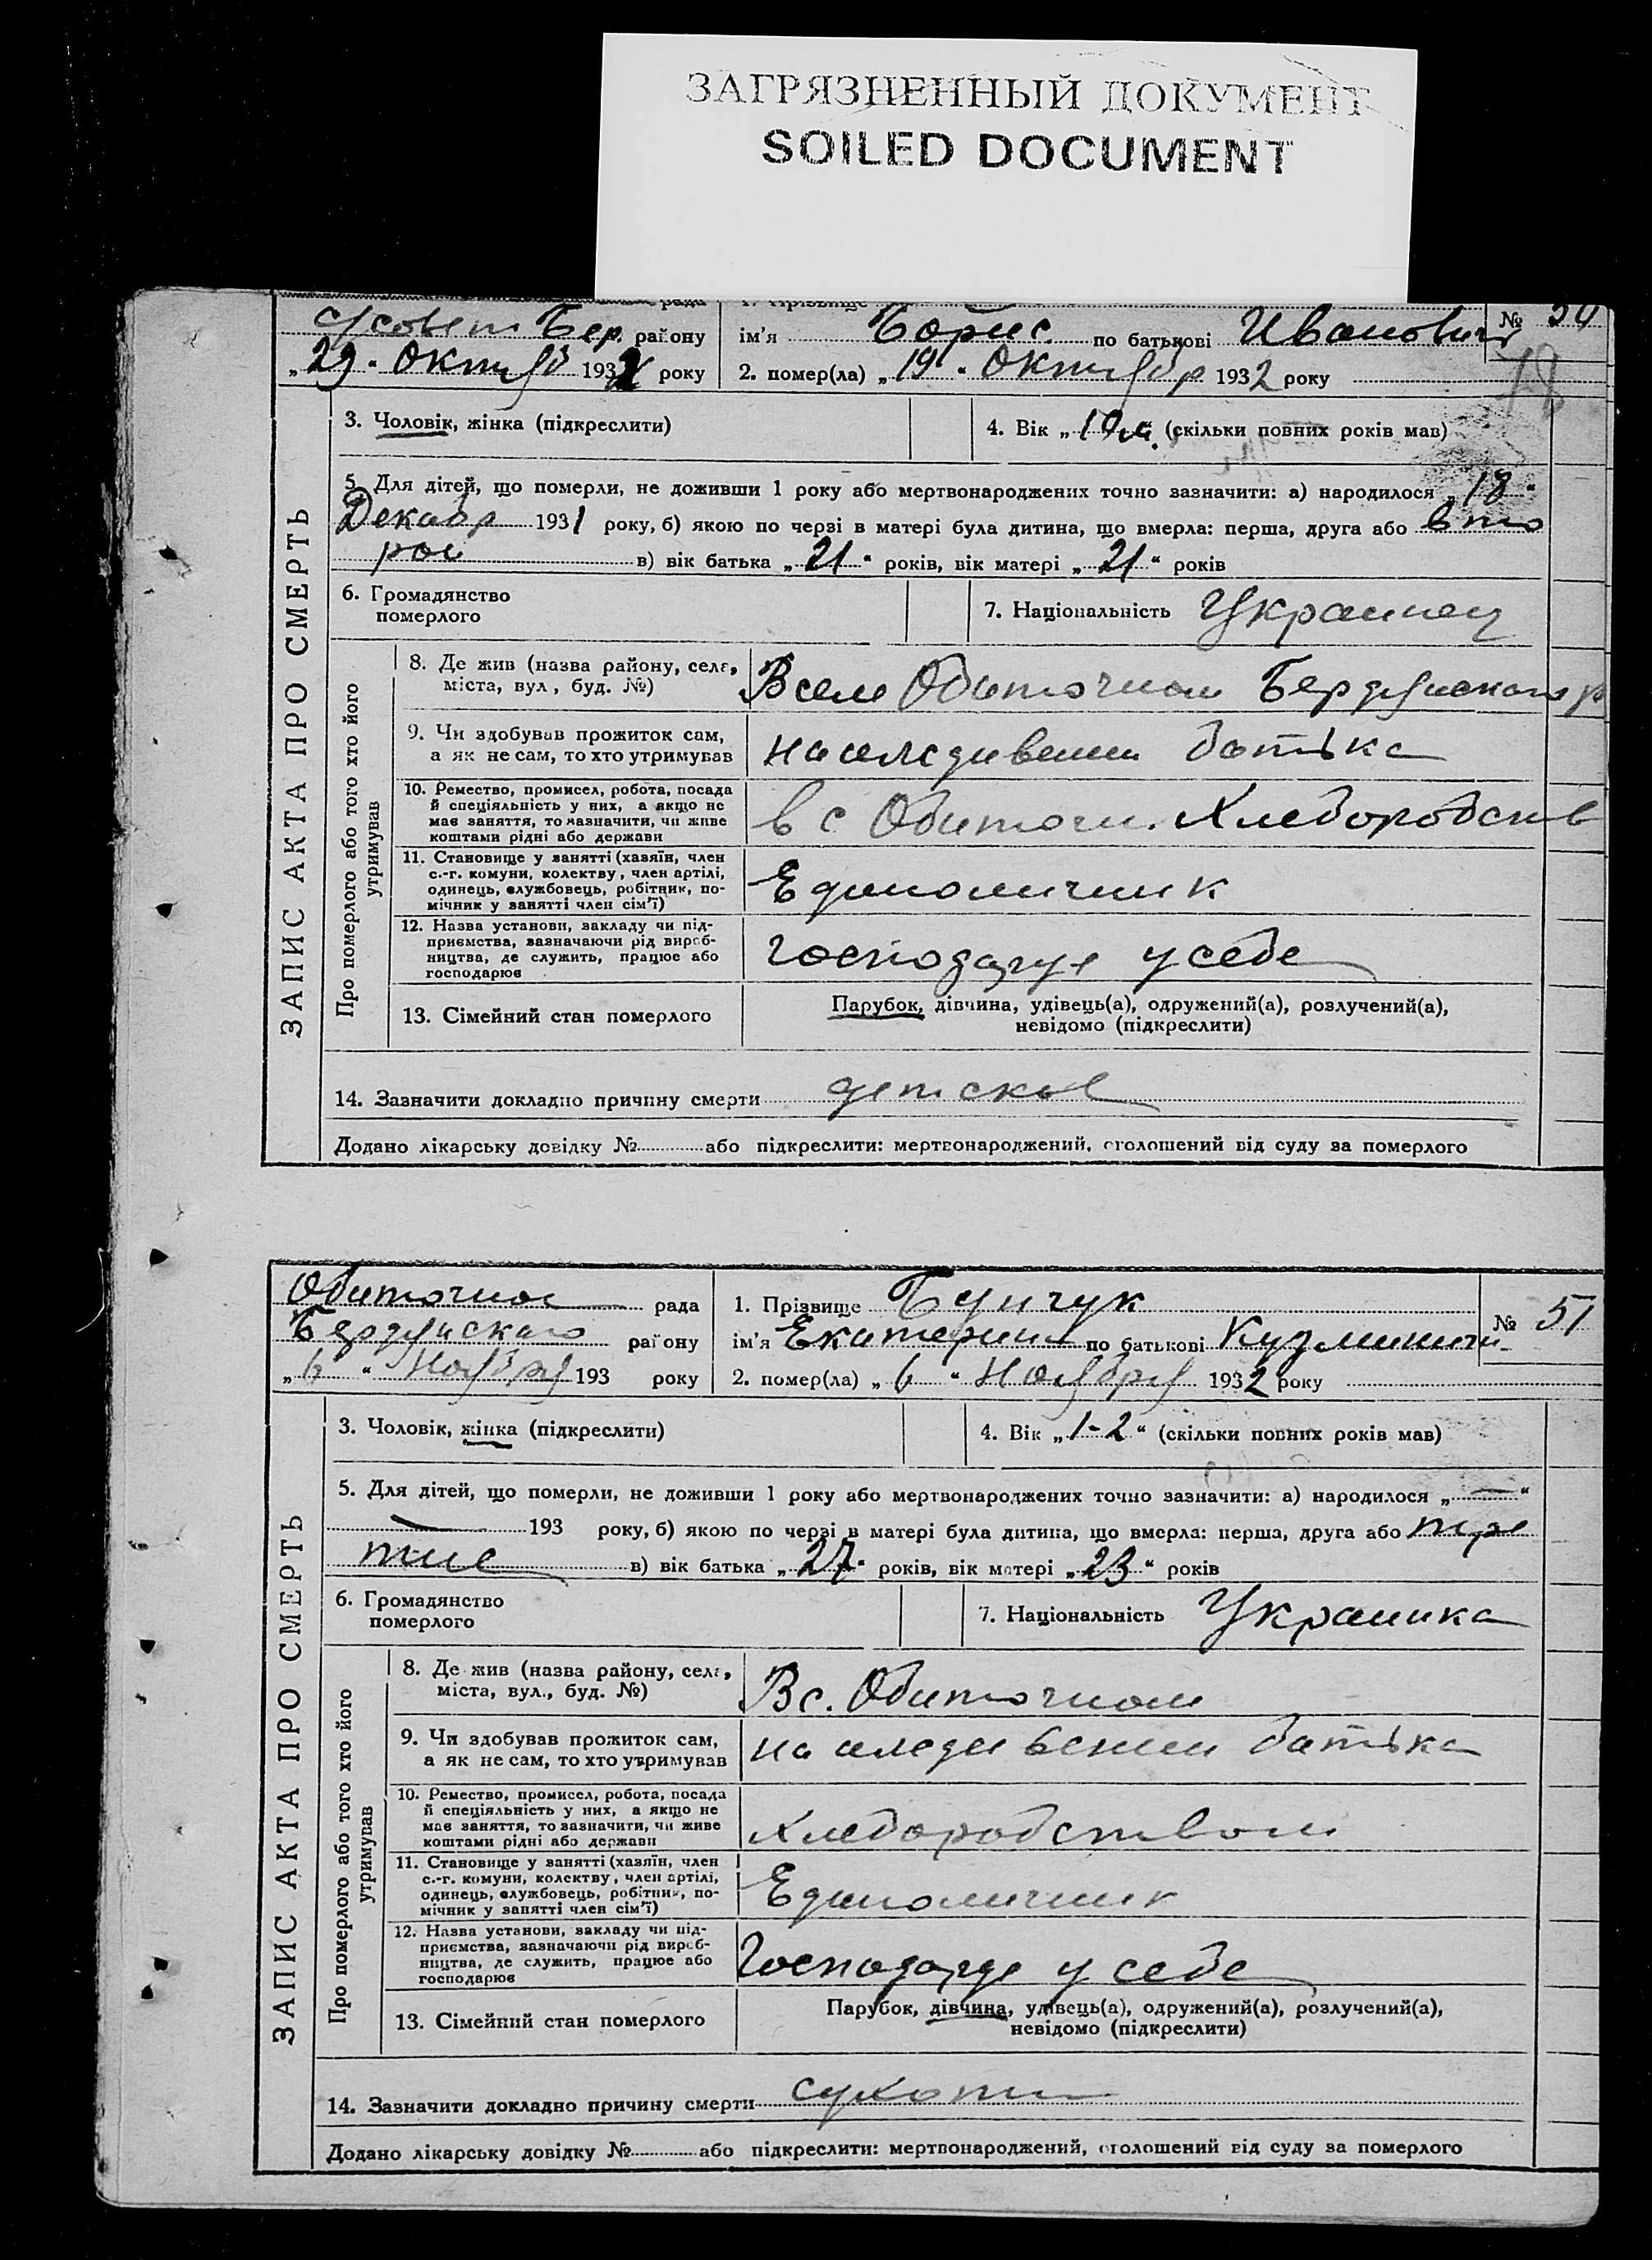 ЗАГРЯЗНЕННЫЙ ДОКУМЕНТ
SOILED DOCUMENT
с/совет Бер. району ім'я Борис. по батькові Иванович №
„29" Октябр 1932 року 2. помер(ла) „19" Октябр 1932 року
3. Чоловік, жінка (підкреслити) 4. Вік „10 м." (скільки повних років мав)
5. Для дітей, що померли, не доживши 1 року або мертвонароджених точно зазначити: а) народилося „18"
Декабр 1931 року, б) якою по черзі в матері була дитина, що вмерла: перша, друга або вто
рой в) вік батька „21" років, вік матері „21" років
6. Громадянство
померлого
7. Національність Украинец
ЗАПИС АКТА ПРО СМЕРТЬ
Про померлого або того хто його
утримував
8. Де жив (назва району, села,
міста, вул., буд. №)
В селе Обиточном Бердянского р
9. Чи здобував прожиток сам,
а як не сам, то хто утримував
на иждивении батька
10. Ремество, промисел, робота, посада
й спеціяльність у них, а якщо не
має заняття, то зазначити, чи живе
коштами рідні або держави
в с Обиточн. Хлебородств
11. Становище у занятті (хазяїн, член
с.-г. комуни, колектву, член артілі,
одинець, службовець, робітник, по-
мічник у занятті член сім'ї)
Единоличник
12. Назва установи, закладу чи під-
приємства, зазначаючи рід вироб-
ництва, де служить, працює або
господарює
господарує у себе
13. Сімейний стан померлого
Парубок, дівчина, удівець(а), одружений(а), розлучений(а),
невідомо (підкреслити)
14. Зазначити докладно причину смерти детская
Додано лікарську довідку № або підкреслити: мертвонароджений, оголошений від суду за померлого
Обиточное рада 1. Прізвище Бунчук
Бердянского району ім'я Екатерина по батькові Кузминична № 51
„6" Ноября 193 року 2. помер(ла) „6" Ноября 1932 року
3. Чоловік, жінка (підкреслити) 4. Вік „1-2" (скільки повних років мав)
5. Для дітей, що померли, не доживши 1 року або мертвонароджених точно зазначити: а) народилося „—"
— 193 року, б) якою по черзі в матері була дитина, що вмерла: перша, друга або тре
тие в) вік батька „27" років, вік матері „23" років
6. Громадянство
померлого
7. Національність Украинка
ЗАПИС АКТА ПРО СМЕРТЬ
Про померлого або того хто його
утримував
8. Де жив (назва району, села,
міста, вул., буд. №)
В с. Обиточном
9. Чи здобував прожиток сам,
а як не сам, то хто утримував
на иждивении батька
10. Ремество, промисел, робота, посада
й спеціяльність у них, а якщо не
має заняття, то зазначити, чи живе
коштами рідні або держави
Хлебородством
11. Становище у занятті (хазяїн, член
с.-г. комуни, колектву, член артілі,
одинець, службовець, робітник, по-
мічник у занятті член сім'ї)
Единоличник
12. Назва установи, закладу чи під-
приємства, зазначаючи рід вироб-
ництва, де служить, працює або
господарює
Господарує у себе
13. Сімейний стан померлого
Парубок, дівчина, удівець(а), одружений(а), розлучений(а),
невідомо (підкреслити)
14. Зазначити докладно причину смерти сухоти
Додано лікарську довідку № або підкреслити: мертвонароджений, оголошений від суду за померлого